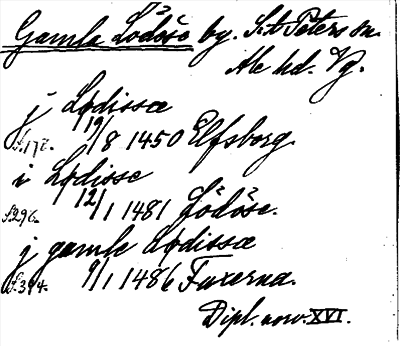 Gamla Lödöse by. S:t Peters sn.
Ale hd. Vg.
j Lødissæ
s. 172. 19/8 1450 Elfsborg.
i Lødisse
s. 296. 12/1 1481 Lödöse.
j gamle Lødissæ
s. 394. 9/1 1486 Tuxerna.
Dipl. norv. XVI.